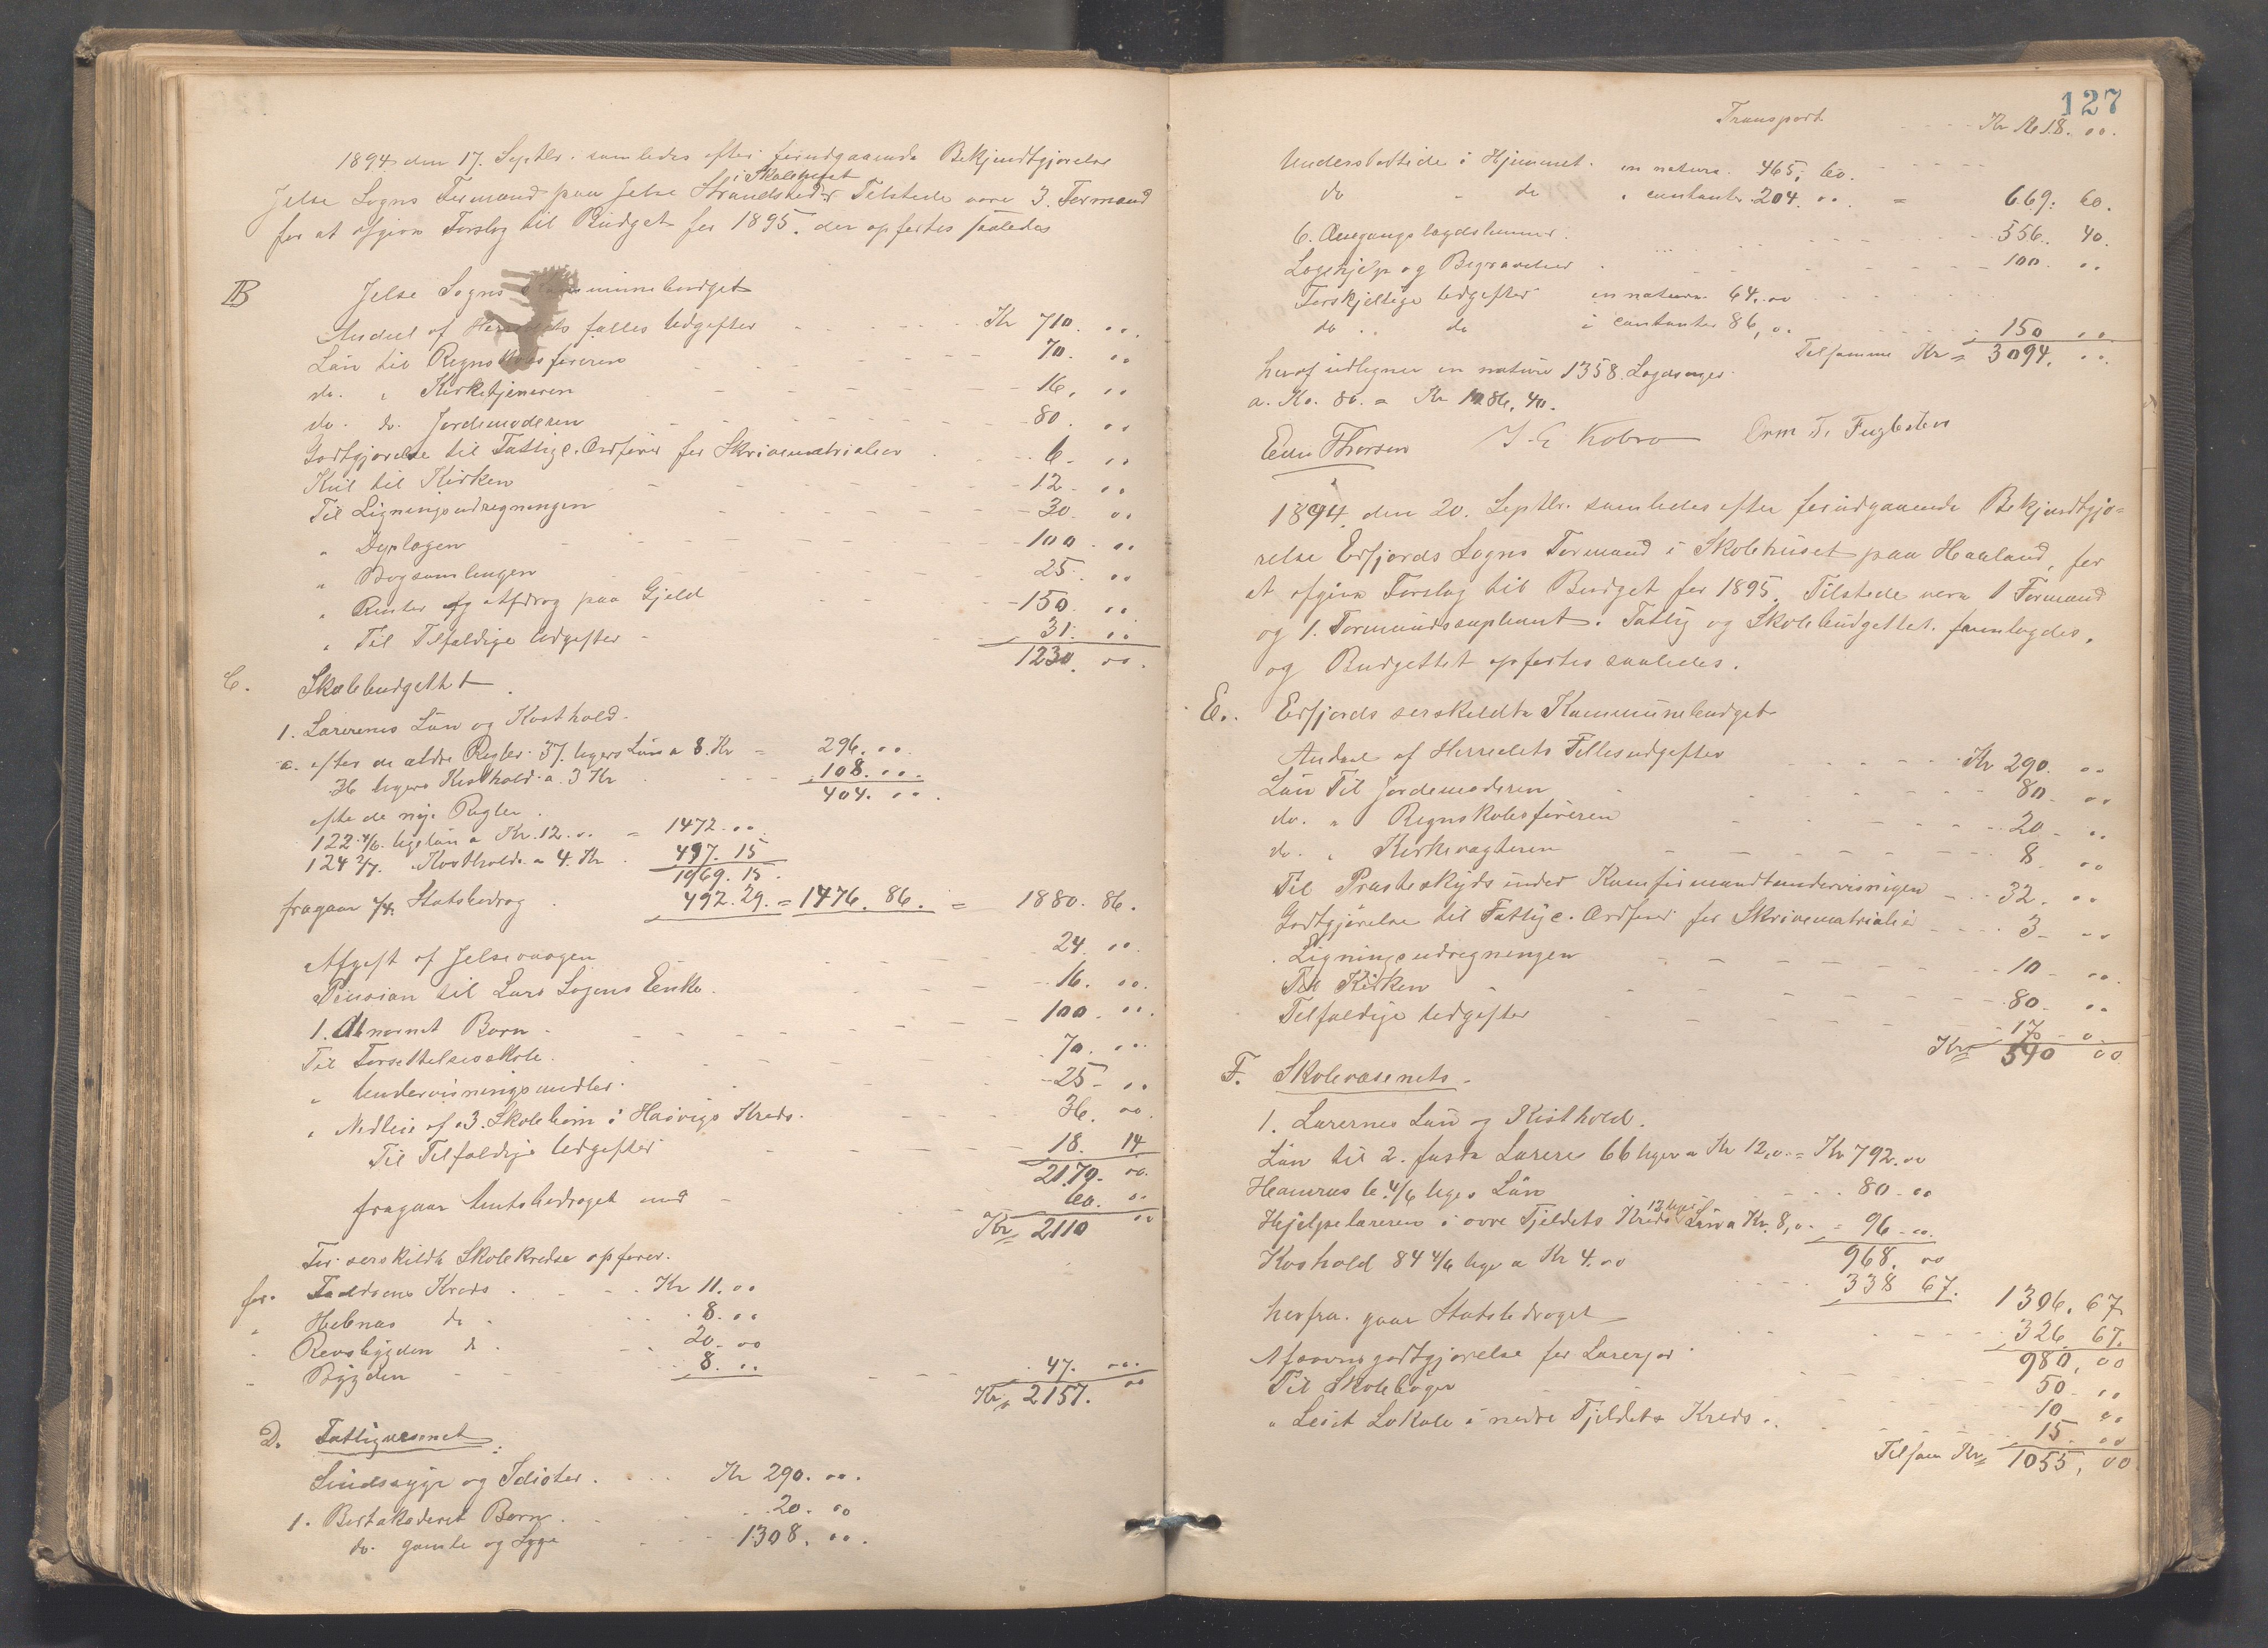 1894 den 17. Septbr. samledes efter forudgaaende Bekjendtgjørelse
i Skolehuset
Jelse Sogns Formænd paa Jelse Strandsted. Tilstede vare 3 Formænd
for at afgive Forslag til Budget for 1895. der opførtes saaledes
B Jelse Sogns Kommunebudget
Andeel af Herredets fælles Udgifter Kr 710. 00.
Løn til Regnskabsføreren 70. 00
do. " Kirketjeneren 16, 00
do. do. Jordemoderen 80. 00
Godtgjørelse til Fattigc. Ordfører for Skrivematrialier 6. 00
Kul til Kirken 12. 00
Til Ligningsudregningen 30. 00
" Dyrlægen 100. 00
" Bogsamlingen 25. 00
" Renter og Afdrag paa Gjeld 150. 00
" Til Tilfældige Udgifter 31. 00
1230. 00.
C. Skolebudgettet
1. Lærernes Løn og Kosthold.
a. efter de ældre Regler. 37 Ugers Løn a 8. Kr = 296. 00.
36 Ugers Kosthold a. 3 Kr 108. 00.
404. 00.
efter de nye Regler.
122 4/6. Ugeløn a Kr. 12. 00 = 1472. 00.
124 2/7. Kosthold. a 4. Kr 497. 15
1969. 15.
fragaar 1/4. Statsbidrag 492. 29. = 1476. 86. = 1880. 86.
Afgift af Jelsevaagen 24. 00.
Pension til Lars Enke. 16. 00.
1. Abnormt Barn 100. 00.
Til Forsettelsesskole. 70. 00.
" Undervisningsmidler. 25. 00
" Nedleie af 3. Skolebørn i Kreds. 36. 00.
Til Tilfældige Udgifter 18. 14
2179. 00.
fragaar Amtsbidraget med 60. 00
Kr. 2110 00
For serskildte Skolekredse opføres.
for. Kreds Kr 11. 00
" Hebnæs do 8. 00
" do 20. 00
" Bygden 8. 00 47. 00.
Kr. 2157. 00
D. Fattigvesenet
Sindssyge og Idioter. Kr 290. 00.
1. Bortakoderet Barn. 20. 00
do. gamle og Syge 1308. 00.
127
Transport. Kr 1618. 00.
Understøttede i Hjemmet. in natura. 465, 60.
do " do " contanter 204. 00. = 669. 60.
6. Omgangslægdslemmer. 556. 40.
Lægehjelp og Begravelser 100. 00
Forskjellige Udgifter in natura 64. 00
do " do i contanter 86, 00. 150 00
Tilsamme Kr = 3094. 00.
heraf udlignes in natura 1358. Lægdsuger
a. Ko. 80. = Kr 1086, 40.
Thorsen J. E. Kobro Orm T. Fuglesten
1894. den 20. Septbr. samledes efter forudgaaende Bekjendtgjø-
relse Erfjords Sogns Formænd i Skolehuset paa Haaland, for
at afgive Forslag til Budget for 1895. Tilstede vare 1 Formand
og 1. Formandssupleant. Fattig og Skolebudgettet fremlagdes,
og Budgettet opførtes saaledes.
E. Erfjords serskildte Kommunebudget
Andeel af Herredets Fellesudgifter Kr 290. 00
Løn Til Jordemoderen 80. 00
do. " Regnskabsføreren 20. 00
do. " Kirkevagteren 8. 00
Til Presteskyds under Konfirmandtundervisningen 32. 00
Godtgjørelse til Fattigc. Ordfører for Skrivematrialie 3. 00
" Ligningsudregningen 10. 00.
Til Kirken 80. 00
Tilfældige Udgifter 17. 00
Kr 540 00
F. Skolevæsenets.
1. Lærernes Løn og Kosthold.
Løn til 2. faste Lærere 66 Uger a Kr 12, 00 = Kr 792. 00
6 4/6 Uges Løn 80. 00
12 Uger
Hjelpelæreren i øvre Tjeldets Kreds Løn a Kr. 8, 00. = 96. 00.
968. 00
Koshold 84 4/6 Uge a Kr 4. 00 338 67.
1306. 67.
herfra. gaar Statsbidraget 326. 67.
980. 00
Afsavnsgodtgjørelse for Lærerjor 50. 00
Til Skolebøger 10 00
" Leiet Lokale i nedre Tjeldets Kreds. 15. 00
Tilsam Kr. 1055, 00